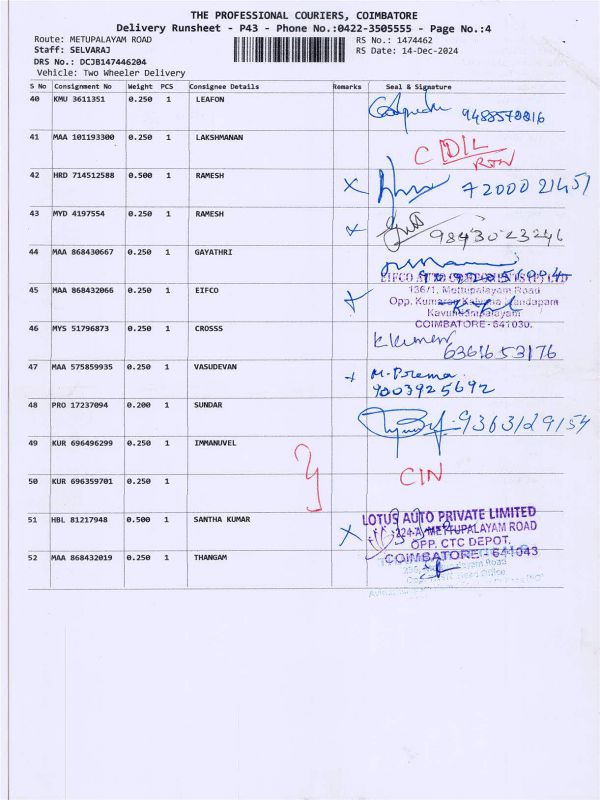 THE PROFESSIONAL COURIERS, COIMBATORE
Delivery Runsheet - P43 - Phone No.:0422-3505555 - Page No.:4
Route: METUPALAYAM ROAD RS No.: 1474462
Staff: SELVARAJ RS Date: 14-Dec-2024
DRS No.: DCJB147446204
Vehicle: Two Wheeler Delivery
S No Consignment No Weight PCS Consignee Details Remarks Seal & Signature
40 KMU 3611351 0.250 1 LEAFON
9488570816
41 MAA 101193300 0.250 1 LAKSHMANAN
C D/L
RTN
42 HRD 714512588 0.500 1 RAMESH
X 7200021451
43 MYD 4197554 0.250 1 RAMESH
9843023246
44 MAA 868430667 0.250 1 GAYATHRI
45 MAA 868432066 0.250 1 EIFCO
136/1, Mettupalayam Road
Opp. Kumaran Kalyana Mandapam
Kavundampalayam
COIMBATORE - 641030.
46 MYS 51796873 0.250 1 CROSSS
K Kumar
6361653176
47 MAA 575859935 0.250 1 VASUDEVAN
M. Prema
9003925692
48 PRO 17237094 0.200 1 SUNDAR
9363129154
49 KUR 696496299 0.250 1 IMMANUVEL
CIN
50 KUR 696359701 0.250 1
51 HBL 81217948 0.500 1 SANTHA KUMAR
X LOTUS AUTO PRIVATE LIMITED
224-A, METTUPALAYAM ROAD
OPP. CTC DEPOT,
COIMBATORE - 641043
52 MAA 868432019 0.250 1 THANGAM